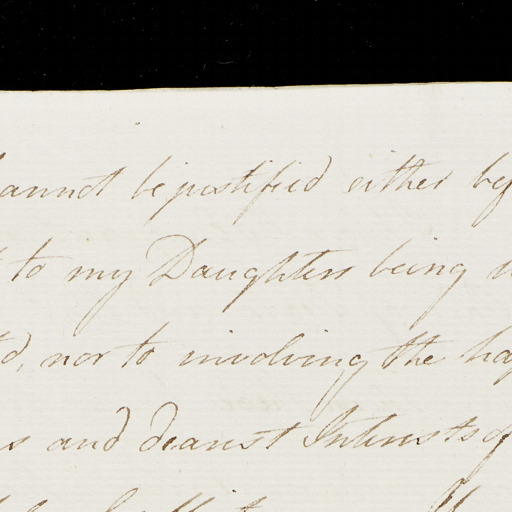 cannot be justified either
to my Daughters being
nor to involving the
and dearest Interests of